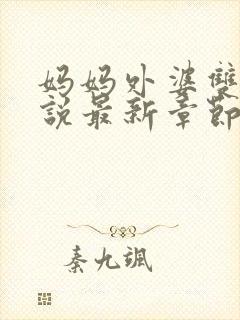 妈妈外婆雙
說最新章節
秦九颯